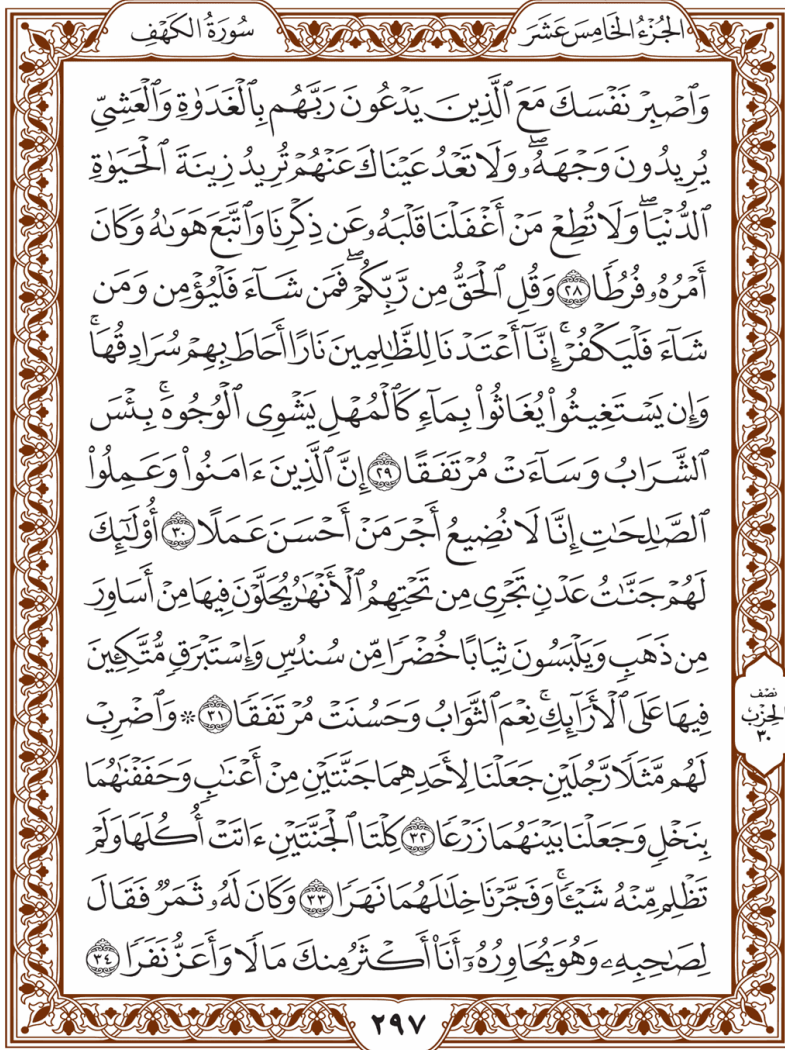 الجُزْءُ الخَامِسَ عَشَرَ
سُورَةُ الكَهْفِ
وَٱصْبِرْ نَفْسَكَ مَعَ ٱلَّذِينَ يَدْعُونَ رَبَّهُم بِٱلْغَدَوٰةِ وَٱلْعَشِىِّ
يُرِيدُونَ وَجْهَهُۥۖ وَلَا تَعْدُ عَيْنَاكَ عَنْهُمْ تُرِيدُ زِينَةَ ٱلْحَيَوٰةِ
ٱلدُّنْيَاۖ وَلَا تُطِعْ مَنْ أَغْفَلْنَا قَلْبَهُۥ عَن ذِكْرِنَا وَٱتَّبَعَ هَوَىٰهُ وَكَانَ
أَمْرُهُۥ فُرُطًا ٢٨ وَقُلِ ٱلْحَقُّ مِن رَّبِّكُمْۖ فَمَن شَآءَ فَلْيُؤْمِن وَمَن
شَآءَ فَلْيَكْفُرْۚ إِنَّآ أَعْتَدْنَا لِلظَّـٰلِمِينَ نَارًا أَحَاطَ بِهِمْ سُرَادِقُهَاۚ
وَإِن يَسْتَغِيثُوا۟ يُغَاثُوا۟ بِمَآءٍ كَٱلْمُهْلِ يَشْوِى ٱلْوُجُوهَۚ بِئْسَ
ٱلشَّرَابُ وَسَآءَتْ مُرْتَفَقًا ٢٩ إِنَّ ٱلَّذِينَ ءَامَنُوا۟ وَعَمِلُوا۟
ٱلصَّـٰلِحَـٰتِ إِنَّا لَا نُضِيعُ أَجْرَ مَنْ أَحْسَنَ عَمَلًا ٣٠ أُو۟لَـٰٓئِكَ
لَهُمْ جَنَّـٰتُ عَدْنٍ تَجْرِى مِن تَحْتِهِمُ ٱلْأَنْهَـٰرُ يُحَلَّوْنَ فِيهَا مِنْ أَسَاوِرَ
مِن ذَهَبٍ وَيَلْبَسُونَ ثِيَابًا خُضْرًا مِّن سُندُسٍ وَإِسْتَبْرَقٍ مُّتَّكِـِٔينَ
فِيهَا عَلَى ٱلْأَرَآئِكِۚ نِعْمَ ٱلثَّوَابُ وَحَسُنَتْ مُرْتَفَقًا ٣١ ۞ وَٱضْرِبْ
لَهُم مَّثَلًا رَّجُلَيْنِ جَعَلْنَا لِأَحَدِهِمَا جَنَّتَيْنِ مِنْ أَعْنَـٰبٍ وَحَفَفْنَـٰهُمَا
بِنَخْلٍ وَجَعَلْنَا بَيْنَهُمَا زَرْعًا ٣٢ كِلْتَا ٱلْجَنَّتَيْنِ ءَاتَتْ أُكُلَهَا وَلَمْ
تَظْلِم مِّنْهُ شَيْـًٔاۚ وَفَجَّرْنَا خِلَـٰلَهُمَا نَهَرًا ٣٣ وَكَانَ لَهُۥ ثَمَرٌ فَقَالَ
لِصَـٰحِبِهِۦ وَهُوَ يُحَاوِرُهُۥٓ أَنَا۠ أَكْثَرُ مِنكَ مَالًا وَأَعَزُّ نَفَرًا ٣٤
نصْف
الحِزْبُ
٣٠
٢٩٧